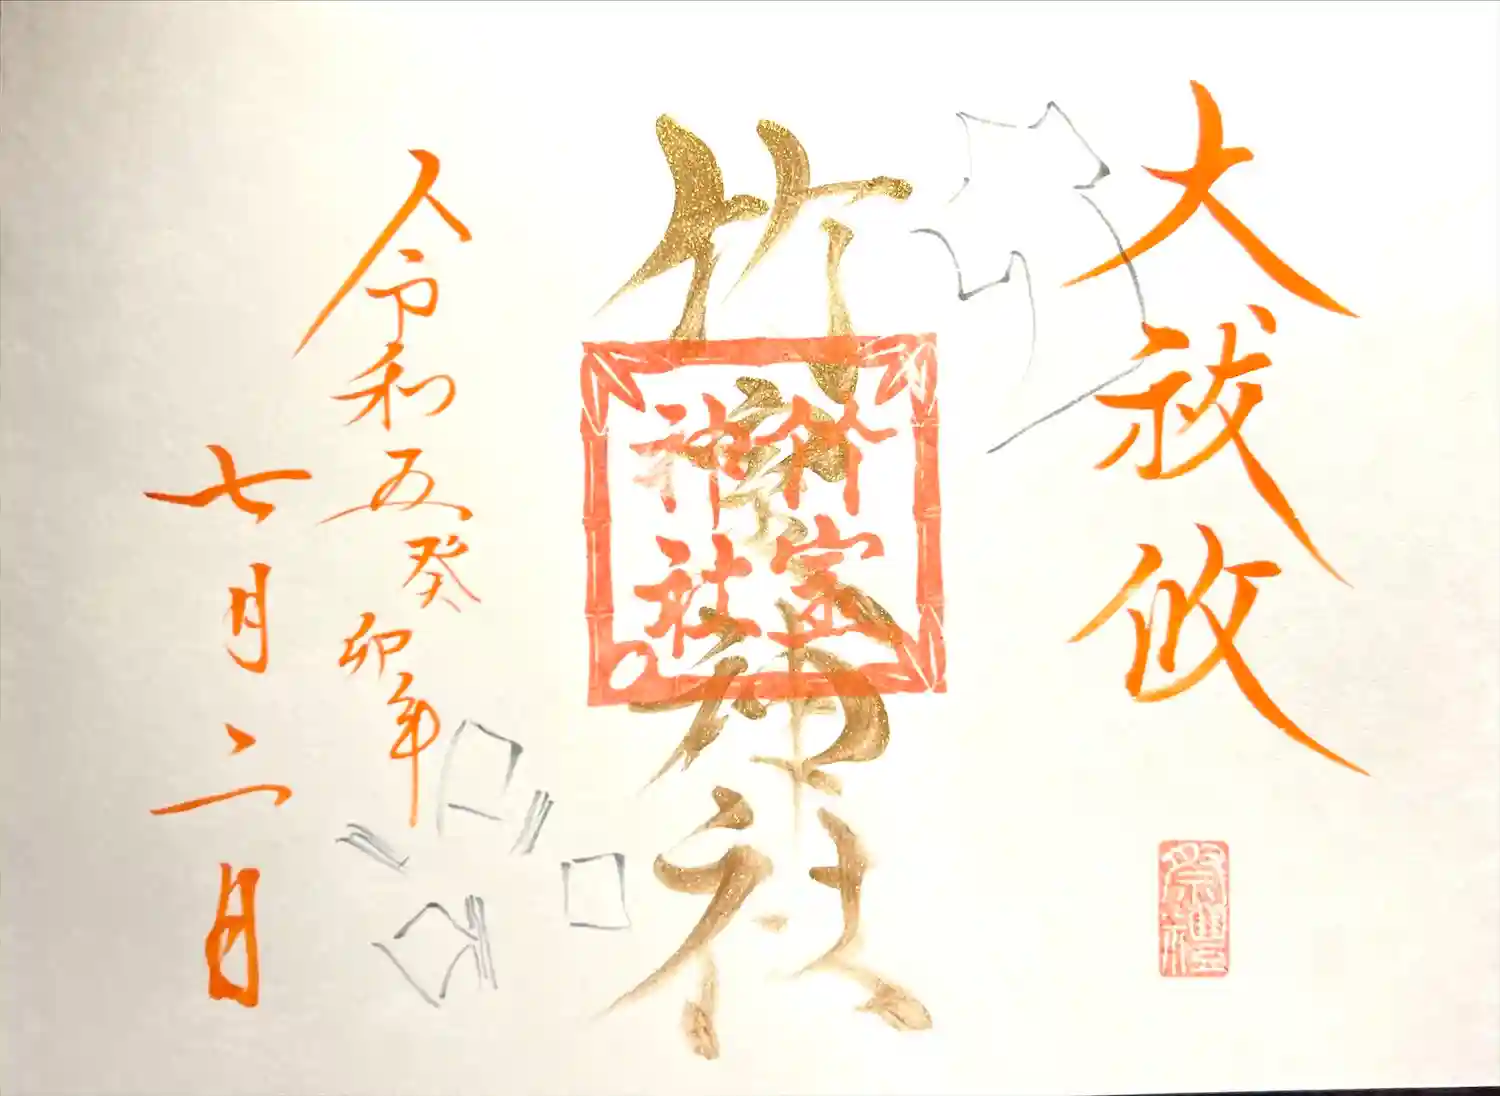 大祓攸
竹宗神社
竹宗
神社
令和五癸卯年
七月二日